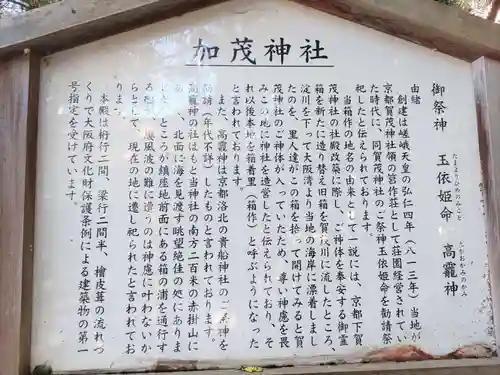 加茂神社
御祭神 玉依姫命 高龗神
たまよりひめのみこと たかおかみのかみ
由緒
創建は嵯峨天皇の弘仁四年（八一三年）当地が
京都賀茂神社領の筥作荘として荘園経営されてい
た時代に、同賀茂神社のご祭神玉依姫命を勧請祭
祀したと伝えられております。
当箱作の地名の由来として一説には、京都下賀
茂神社の社殿改築に際し、ご神体を奉安する御霊
箱を新たに造り替え旧箱を賀茂川に流したところ、
淀川を下って大阪湾より当地の海岸に漂着しまし
たのを、里人達がこの箱を拾って開けてみると賀
茂神社のご神体が入っていたため、尊い神慮を畏
みこの地に神社を造営したと伝えられており、そ
れ以後本地を箱着里（箱作）と呼ぶようになった
と言われております。
また、高龗神は京都洛北の貴船神社のご祭神を
勧請（年代不詳）したものと言われております。
高龗神の社はもと当神社の南方二百米の赤掛山に
あり、北面に海を見渡す眺望絶佳の処にありま
したところが鎮座地前面にある箱の浦を通行す
る船が風波の難に遭うのは神慮に叶わないか
らとして、現在の地に遷し祀られたと言われてお
ります。
本殿は桁行二間、梁行二間半、檜皮葺の流れづ
くりで大阪府文化財保護条例による建築物の第一
号指定を受けています。